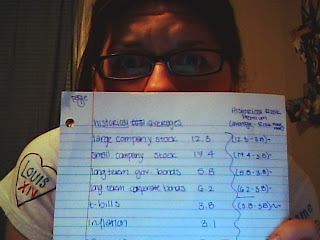 historical averages
HISTORICAL RISK
PREMIUM
large company stock 12.3 (12.3-3.8)=
small company stock 17.4 (17.4-3.8)=
long-term gov. bonds 5.8 (5.8-3.8)=
long term corporate bonds 6.2 (6.2-3.8)=
t-bills 3.8 (3.8-3.8)=
inflation 3.1
LOUIS
XIV